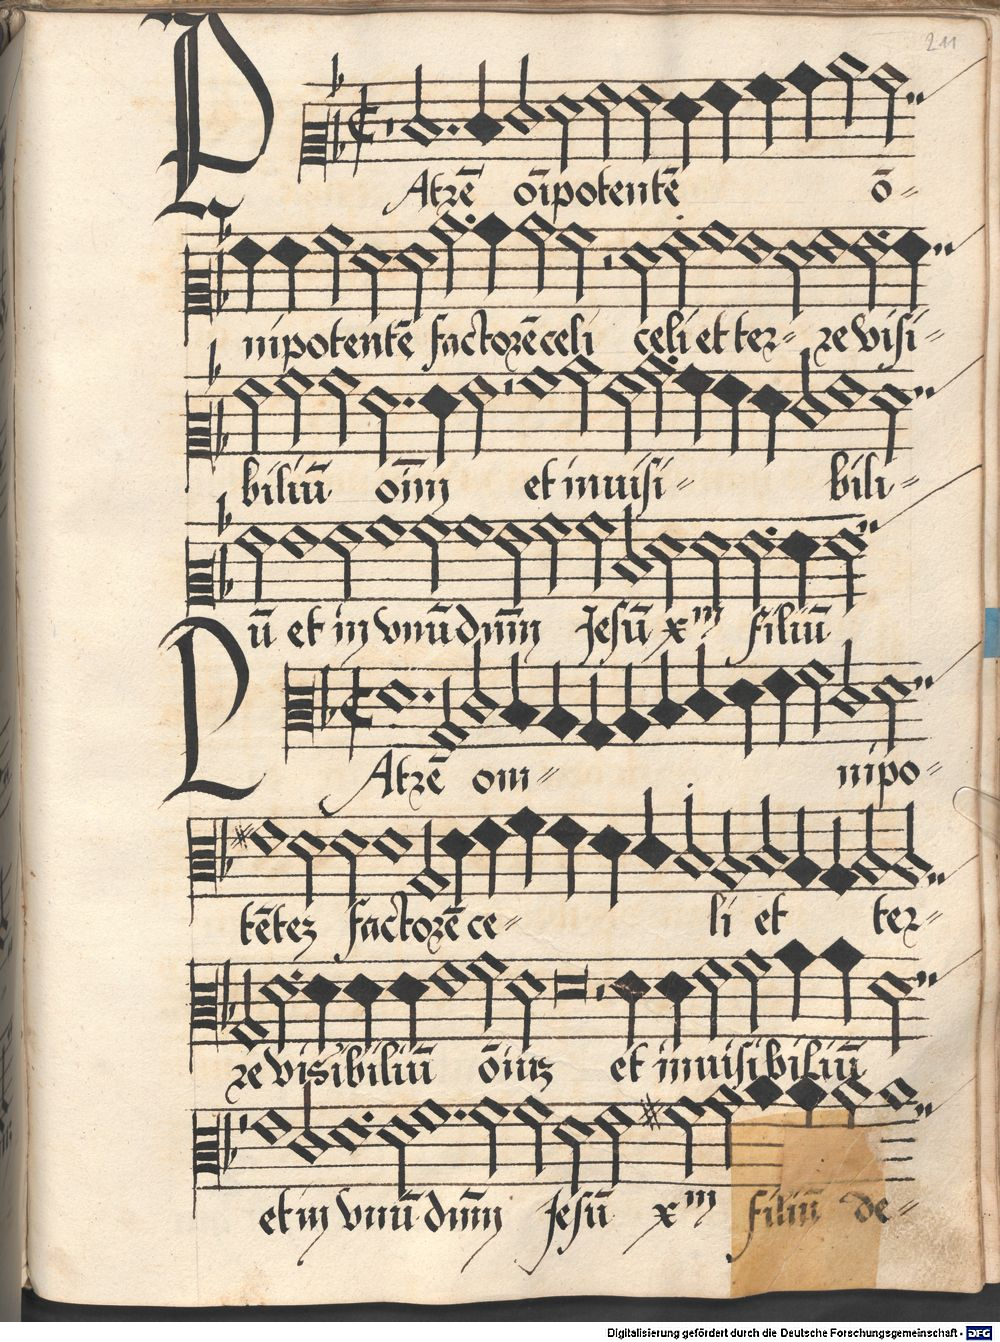 211
PAtrē oīpotentē ō=
nipotentē factorē celi celi et ter= re visi=
biliū oīm et invisi= bili=
ū et in vnū dnm̄ Jesū xᵐ filiū
PAtrē om= nipo=
tētez factorē ce= li et ter=
re visibiliū oīuz et invisibiliū
et in vnū dnm̄ Jesū xᵐ filiū de=
Digitalisierung gefördert durch die Deutsche Forschungsgemeinschaft - DFG